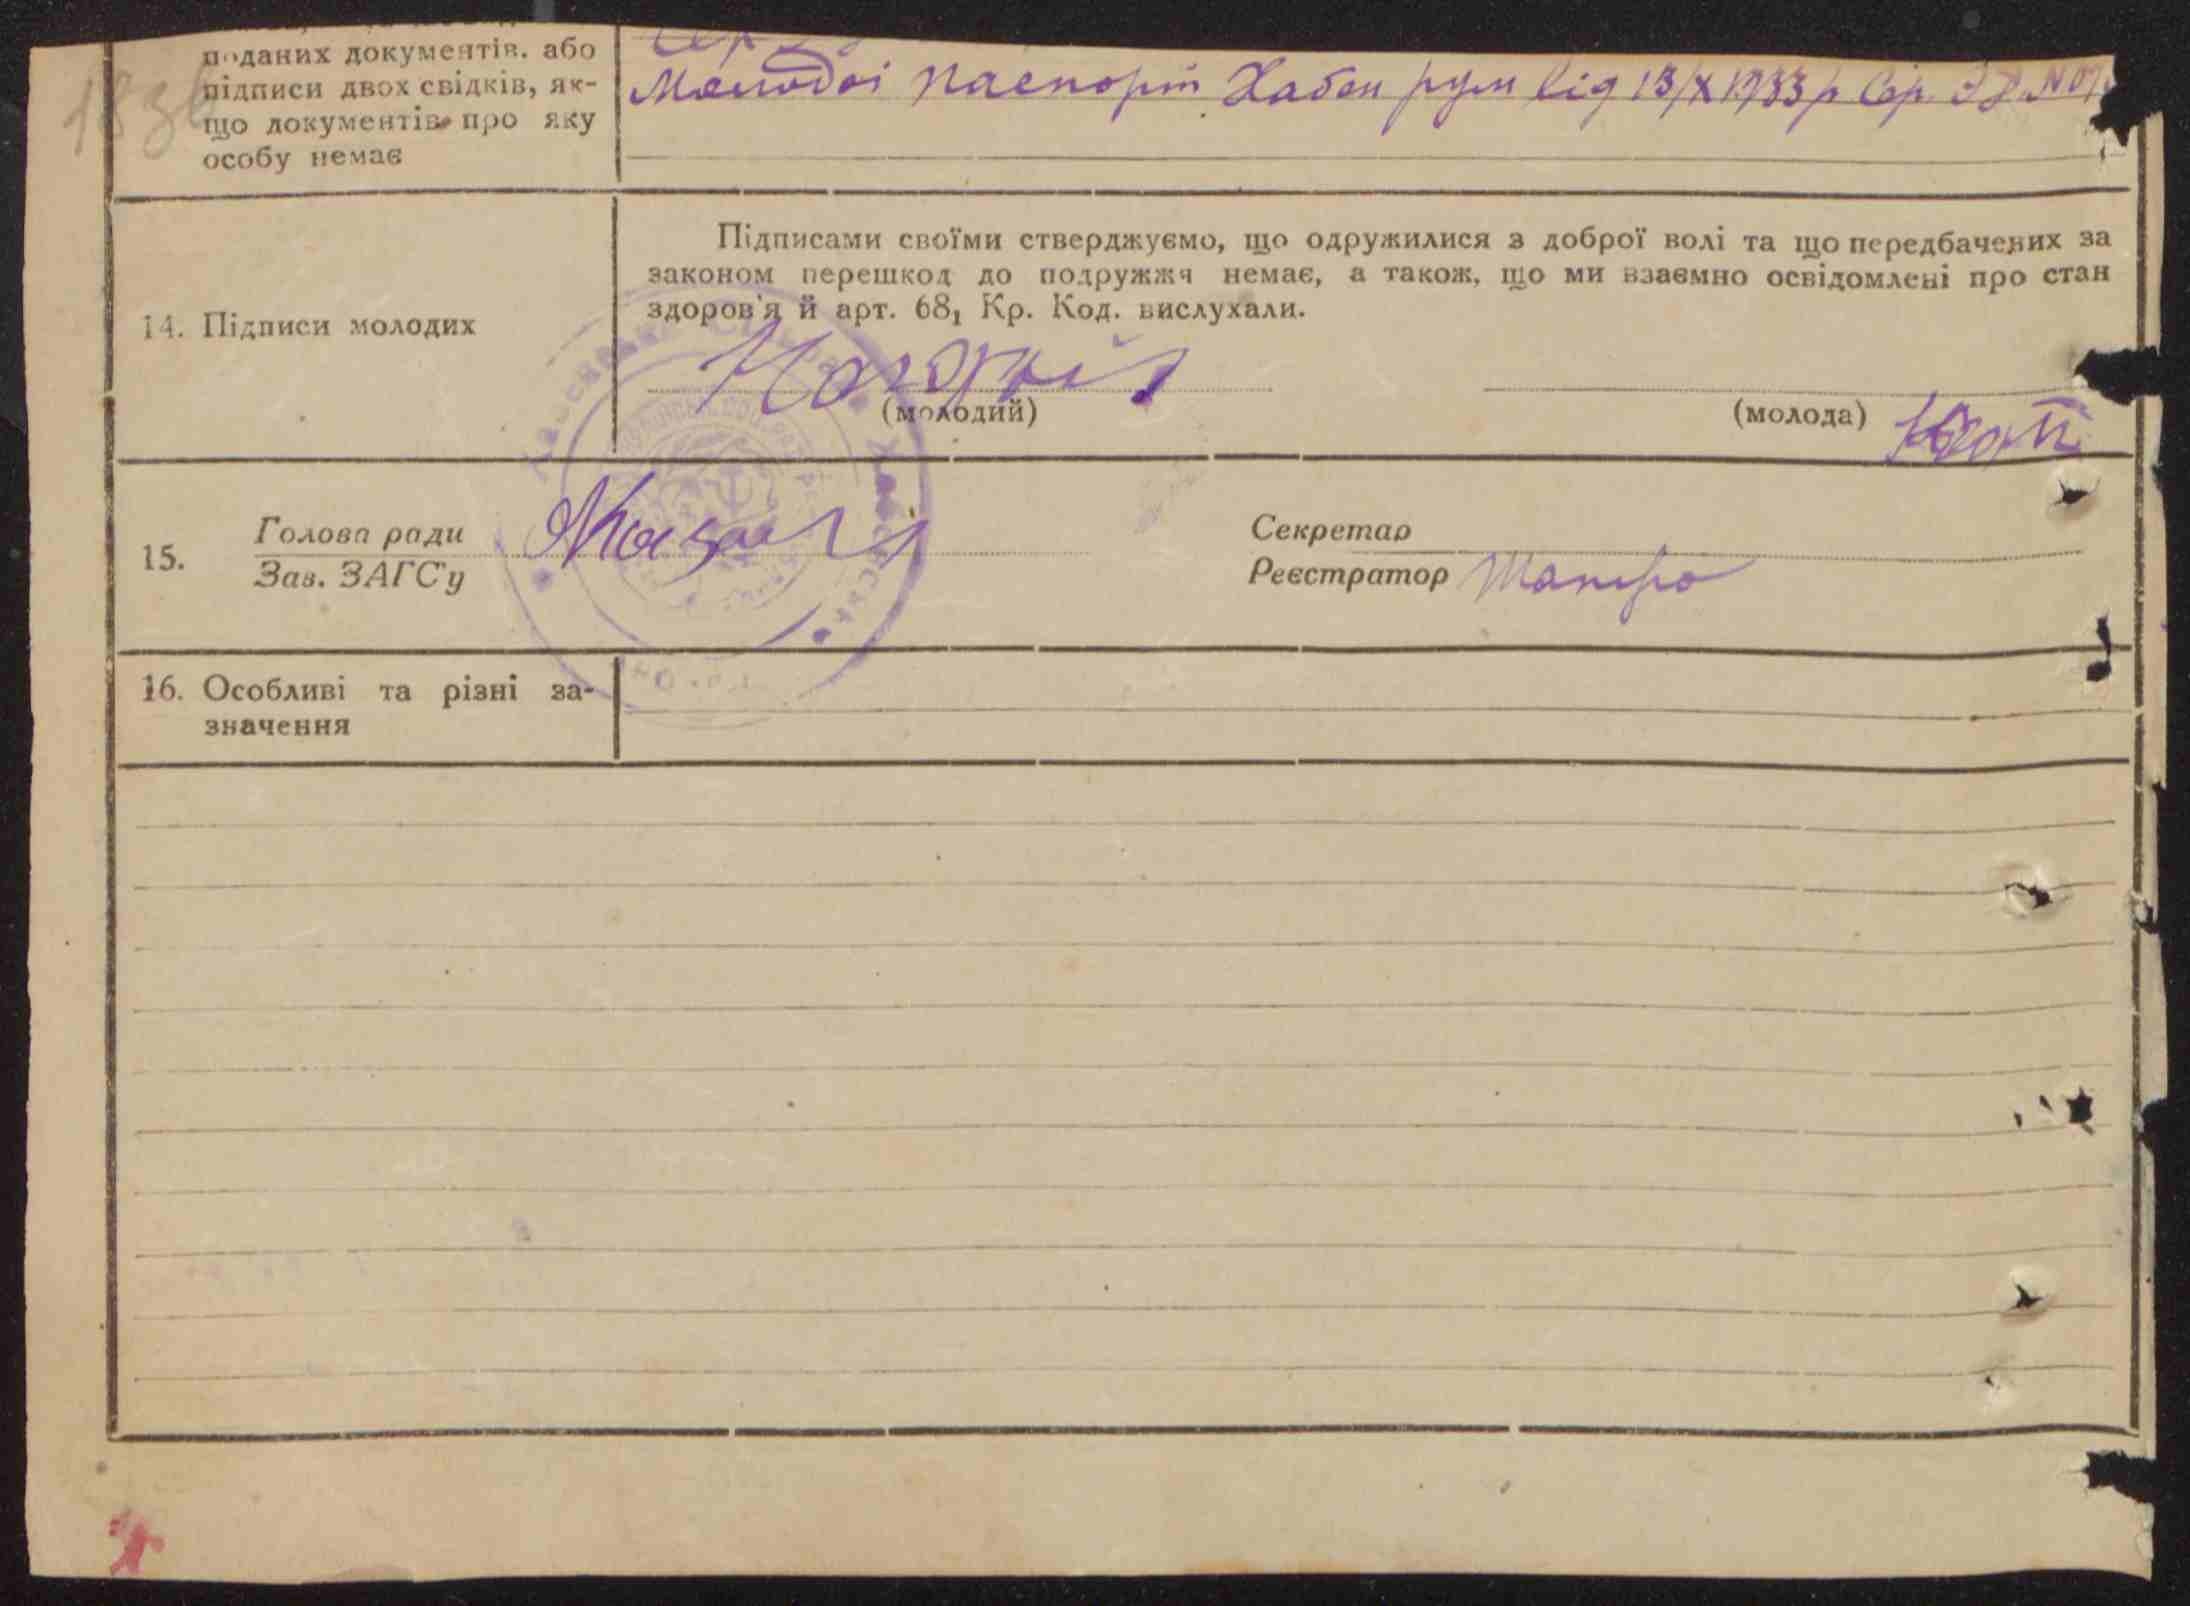 183
поданих документів. або
підписи двох свідків, як-
що документів про яку
особу немає
Молодої паспорт Хабен рум від 13/X 1933 р Сер.
14. Підписи молодих
Підписами своїми стверджуємо, що одружилися з доброї волі та що передбачених за
законом перешкод до подружжя немає, а також, що ми взаємно освідомлені про стан
здоров'я й арт. 68₁ Кр. Код. вислухали.
(молодий)
(молода)
15.
Голова ради
Зав. ЗАГС'у
Секретар
Реєстратор Шапиро
16. Особливі та різні за-
значення